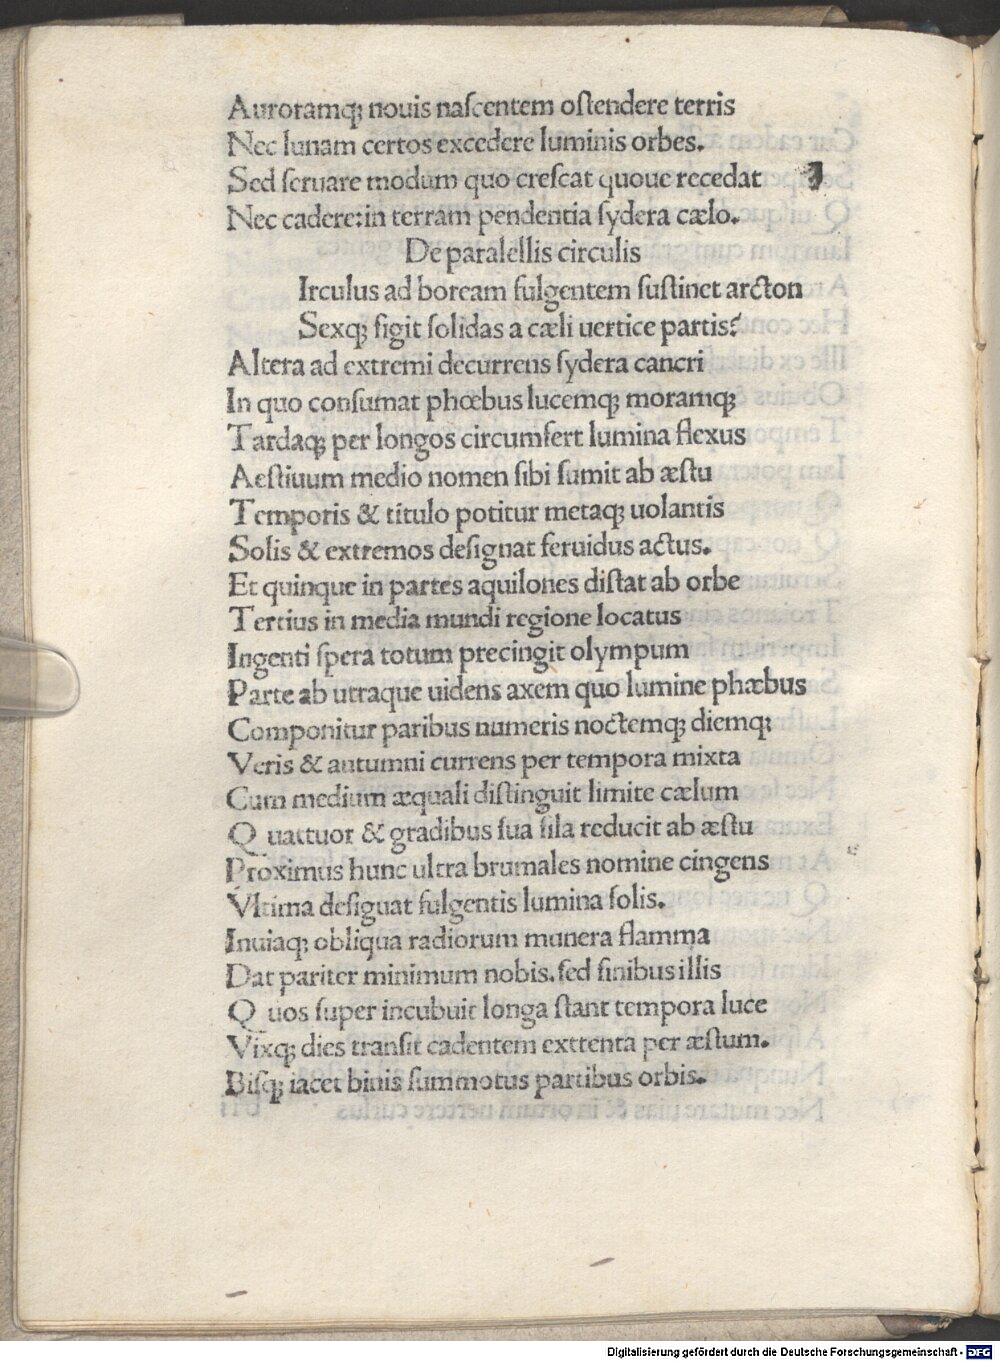 Auroramq; nouis naſcentem oſtendere terris
Nec lunam certos excedere luminis orbes.
Sed ſeruare modum quo creſcat quoue recedat
Nec cadere:in terram pendentia ſydera cælo.
De paralellis circulis
Irculus ad boream fulgentem ſuſtinet arcton
Sexq; figit ſolidas a cæli uertice partis?
Altera ad extremi decurrens ſydera cancri
In quo conſumat phœbus lucemq; moramq;
Tardaq; per longos circumfert lumina flexus
Aeſtiuum medio nomen ſibi ſumit ab æſtu
Temporis & titulo potitur metaq; uolantis
Solis & extremos deſignat feruidus actus.
Et quinque in partes aquilones diſtat ab orbe
Tertius in media mundi regione locatus
Ingenti ſpera totum precingit olympum
Parte ab utraque uidens axem quo lumine phæbus
Componitur paribus numeris noctemq; diemq;
Veris & autumni currens per tempora mixta
Cum medium æquali diſtinguit limite cælum
Quattuor & gradibus ſua fila reducit ab æſtu
Proximus hunc ultra brumales nomine cingens
Vltima deſignat fulgentis lumina ſolis.
Inuiaq; obliqua radiorum munera flamma
Dat pariter minimum nobis.ſed finibus illis
Quos ſuper incubuit longa ſtant tempora luce
Vixq; dies tranſit cadentem exttenta per æſtum.
Biſq; iacet binis ſummotus partibus orbis.
Digitalisierung gefördert durch die Deutsche Forschungsgemeinschaft - DFG